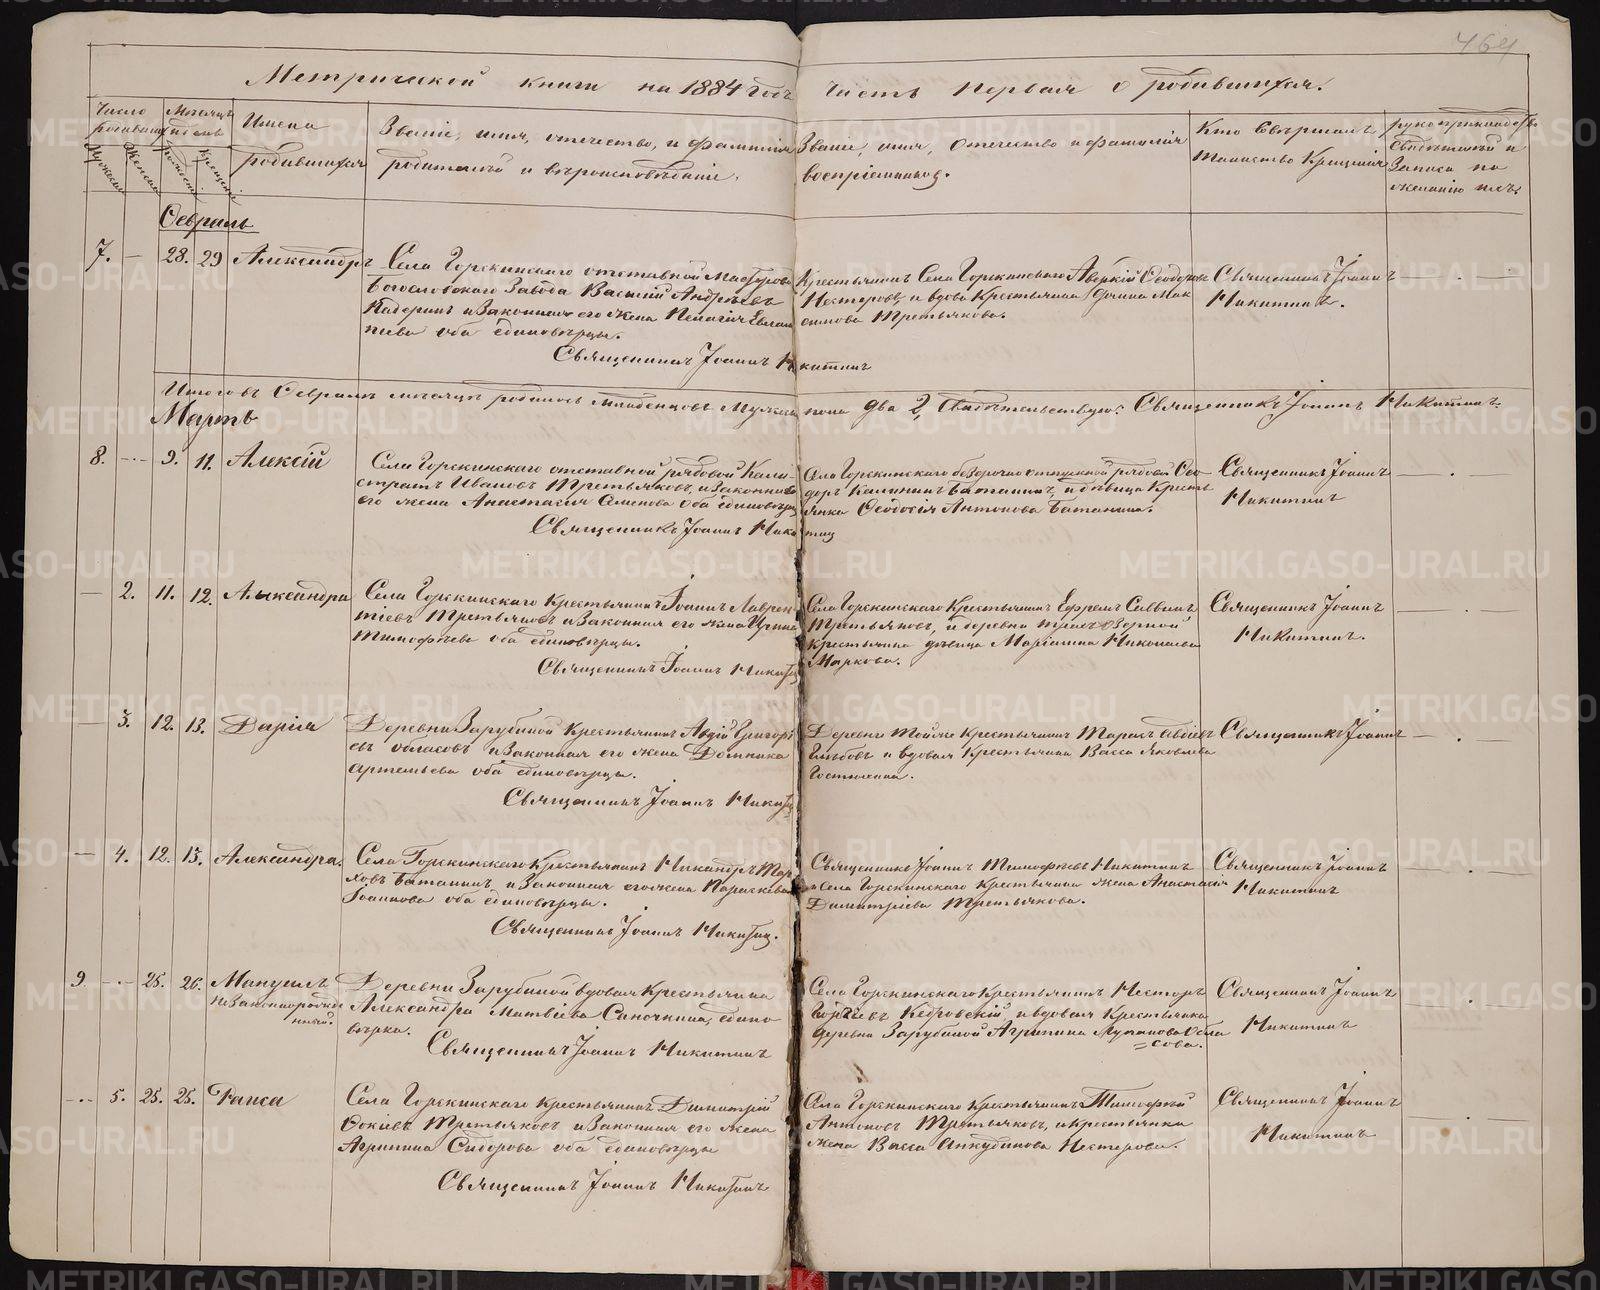 464
Метрической книги на 1884 годъ часть первая о родившихся.
Число родившихся
Мужескъ
Женскъ
Мѣсяцъ и день
Рожденія
Крещенія
Имена родившихся
Званіе, имя, отечество, и фамилія родителей и вѣроисповѣданіе.
Званіе, имя, отечество и фамилія воспріемниковъ.
Кто совершалъ таинство Крещенія
рукоприкладство свидѣтелей и записи по желанію ихъ
Февраль
7. — 28. 29 Александръ
Села Горскинскаго отставной мастеровой
Богословскаго Завода Василій Андреевъ
и законная его жена Пелагія Евлам
піева оба единовѣрцы.
Священникъ Іоаннъ Никитинъ
Крестьянинъ Села Горскинскаго Аверкій Ѳеодоровъ
Нестеровъ и вдова крестьянка Дочина Мак
симова Третьякова.
Священникъ Іоаннъ
Никитинъ.
Итого въ Февралѣ мѣсяцѣ родилось младенцовъ мужеска пола два 2, Свидѣтельствую: Священникъ Іоаннъ Никитинъ.
Мартъ
8. — 9. 11. Алексій
Села Горскинскаго отставной рядовой Кали-
стратъ Ивановъ Третьяковъ, и законная
его жена Анастасія Семенова оба единовѣрцы
Священникъ Іоаннъ Никитинъ
Села Горскинскаго безсрочно отпускной рядовой Ѳео-
доръ Калининъ Батанинъ, и дѣвица Кресть
янка Ѳеодосія Антонова Батанина.
Священникъ Іоаннъ
Никитинъ
— 2. 11. 12. Александра
Села Горскинскаго Крестьянинъ Іоаннъ Лаврен-
тіевъ Третьяковъ и законная его жена Ирина
Тимофѣева оба единовѣрцы.
Священникъ Іоаннъ Никитинъ
Села Горскинскаго Крестьянинъ Ефремъ Саввинъ
Третьяковъ, и деревни Трехъ Озерной
крестьянка дѣвица Маріанна Николаева
Маркова.
Священникъ Іоаннъ
Никитинъ.
— 3. 12. 13. Дарія
Деревни Зарубиной Крестьянинъ Авдій Григорі
евъ и законная его жена Домника
Артемьева оба единовѣрцы.
Священникъ Іоаннъ Никитинъ
Деревни Крестьянинъ Тарасъ Авдіевъ
Глѣбовъ и вдовая Крестьянка Васса Яковлева
Священникъ Іоаннъ
— 4. 12. 13. Александра.
Села Горскинскаго Крестьянинъ Никандръ Тар
ховъ Батанинъ, и законная его жена Параскева
Іоаннова оба единовѣрцы.
Священникъ Іоаннъ Никитин.
Священникъ Іоаннъ Тимофѣевъ Никитинъ
и Села Горскинскаго Крестьянина жена Анастасія
Димитріева Третьякова.
Священникъ Іоаннъ
Никитинъ
9. — 25. 26. Мануилъ
незаконнорожден
ный.
Деревни Зарубиной вдовая Крестьянка
Александра Матвѣева единo
вѣрка.
Священникъ Іоаннъ Никитинъ
Села Горскинскаго Крестьянинъ Несторъ
Кедровскій, и вдовая Крестьянка
деревни Зарубиной Агрипина
Священникъ Іоаннъ
Никитинъ
— 5. 25. 25. Раиса
Села Горскинскаго Крестьянинъ Димитрій
Третьяковъ и законная его жена
Агрипина Сидорова оба единовѣрцы
Священникъ Іоаннъ Никитинъ
Села Горскинскаго Крестьянинъ Тимофей
Антоновъ Третьяковъ, и крестьянка
жена Васса Анкудинова Нестерова.
Священникъ Іоаннъ
Никитинъ
METRIKI.GASO-URAL.RU